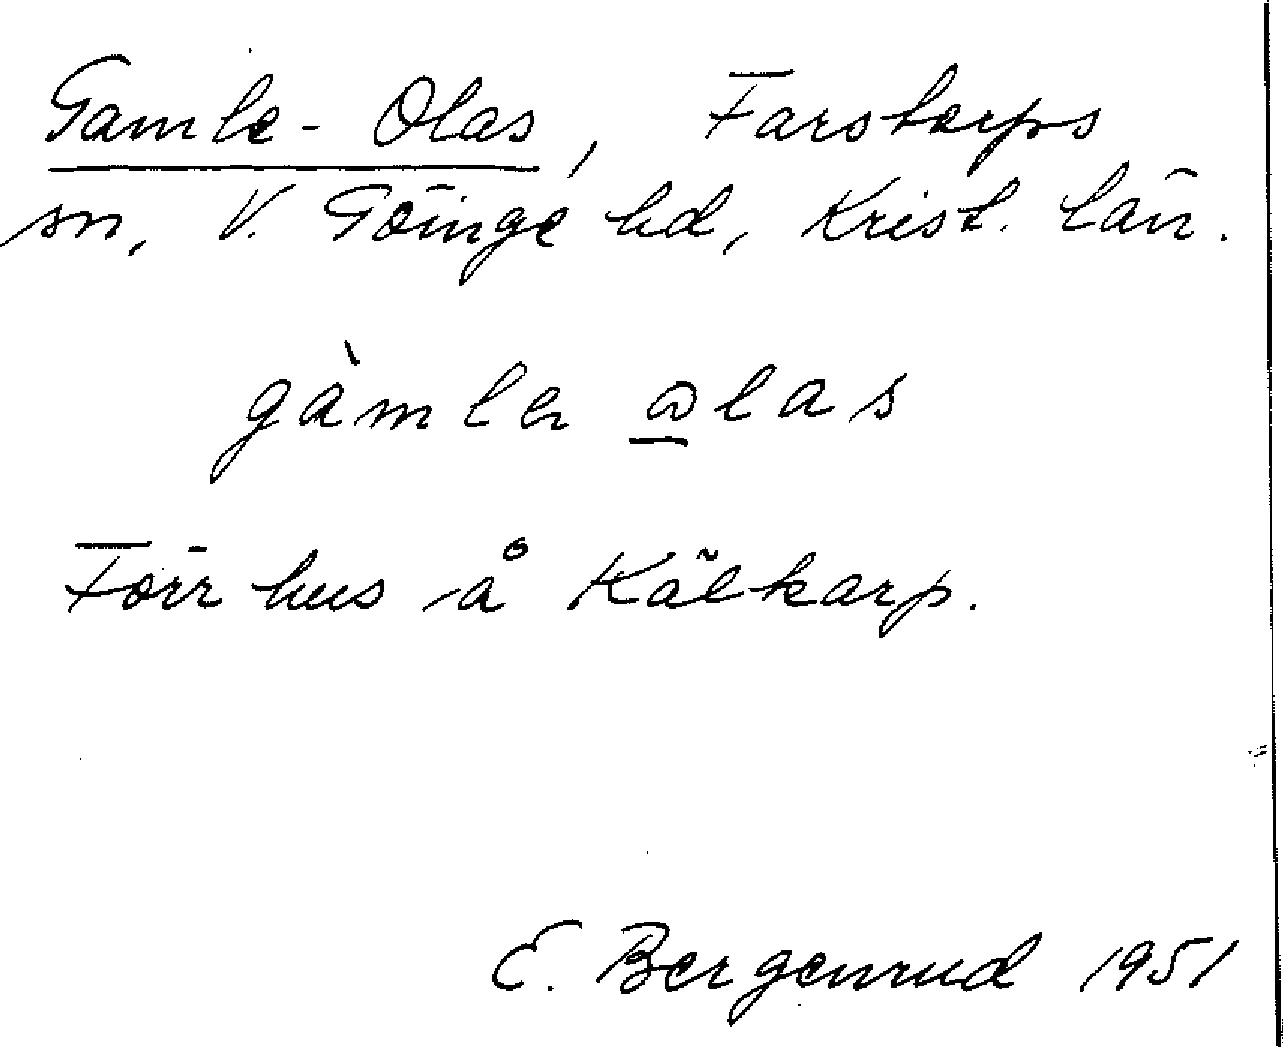 Gamle-Olas, Farstorps
sn, V. Göinge hd, Krist. län.
gàmlə ωlas
Förr hus å Kälkarp.
E. Bergenrud 1951